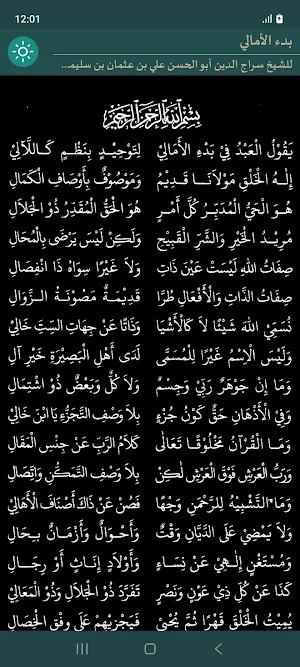 12:01
بدء الأمالي
للشيخ سراج الدين أبو الحسن علي بن عثمان بن سليم...
بِسْمِ اللَّهِ الرَّحْمَنِ الرَّحِيمِ
يَقُولُ الْعَبْدُ فِيْ بَدْءِ الأَمَالِيْ لِتَوْحِيْدٍ بِنَظْمٍ كَاللَّآلِيْ
إِلٰهُ الْخَلْقِ مَوْلاَنَا قَدِيْمٌ وَمَوْصُوْفٌ بِأَوْصَافِ الْكَمَالِ
هُوَ الْحَيُّ الْمُدَبِّرُ كُلَّ أَمْرٍ هُوَ الْحَقُّ الْمُقَدِّرُ ذُو الْجَلاَلِ
مُرِيْدُ الْخَيْرِ وَالشَّرِّ الْقَبِيْحِ وَلَكِنْ لَيْسَ يَرْضَى بِالْمُحَالِ
صِفَاتُ اللهِ لَيْسَتْ عَيْنَ ذَاتٍ وَلاَ غَيْرًا سِوَاهُ ذَا انْفِصَالِ
صِفَاتُ الذَّاتِ وَالْأَفْعَالِ طُرًّا قَدِيْمَةٌ مَصُوْنَةُ الزَّوَالِ
نُسَمِّيْ اللهَ شَيْئًا لاَ كَالْأَشْيَا وَذَاتًا عَنْ جِهَاتِ السِّتِّ خَالِيْ
وَلَيْسَ الْاِسْمُ غَيْرًا لِلْمُسَمَّى لَدَى أَهْلِ الْبَصِيْرَةِ خَيْرِ آلِ
وَمَا إِنْ جَوْهَرٌ رَبِّيْ وَجِسْمٌ وَلاَ كُلٌّ وَبَعْضٌ ذُو اشْتِمَالِ
وَفِي الْأَذْهَانِ حَقٌّ كَوْنُ جُزْءٍ بِلاَ وَصْفِ التَّجَزُّءِ يَا ابْنَ خَالِيْ
وَمَا الْقُرْآنُ مَخْلُوْقًا تَعَالَى كَلاَمُ الرَّبِّ عَنْ جِنْسِ الْمَقَالِ
وَرَبُّ الْعَرْشِ فَوْقَ الْعَرْشِ لَكِنْ بِلاَ وَصْفِ التَّمَكُّنِ وَاتِّصَالِ
وَمَا التَّشْبِيْهُ لِلرَّحْمٰنِ وَجْهًا فَصُنْ عَنْ ذَاكَ أَصْنَافَ الْأَهَالِيْ
وَلاَ يَمْضِيْ عَلَى الدَّيَّانِ وَقْتٌ وَأَحْوَالٌ وَأَزْمَانٌ بِحَالِ
وَمُسْتَغْنٍ إِلٰهِيْ عَنْ نِسَاءٍ وَأَوْلاَدٍ إِنَاثٍ أَوْ رِجَالِ
كَذَا عَنْ كُلِّ ذِيْ عَوْنٍ وَنَصْرٍ تَفَرَّدَ ذُو الْجَلاَلِ وَذُو الْمَعَالِيْ
يُمِيْتُ الْخَلْقَ قَهْرًا ثُمَّ يُحْيِيْ فَيَجْزِيْهِمْ عَلَى وَفْقِ الْخِصَالِ